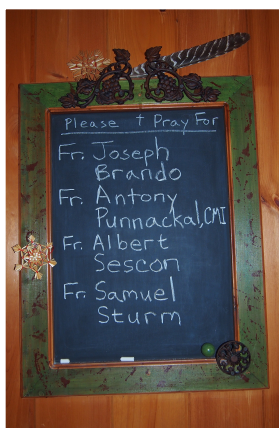 Please † Pray For
Fr. Joseph
Brando
Fr. Antony
Punnackal, CMI
Fr. Albert
Sescon
Fr. Samuel
Sturm